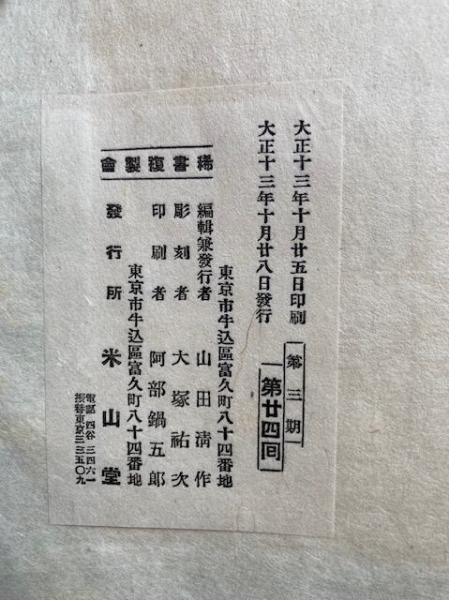 大正十三年十月廿五日印刷
大正十三年十月廿八日發行
第三期
第廿四囘
稀書複製會
東京市牛込區富久町八十四番地
編輯兼發行者 山田淸作
彫刻者 大塚祐次
印刷者 阿部鍋五郎
東京市牛込區富久町八十四番地
發行所 米山堂
電話四谷三四六一
振替東京三三五〇九